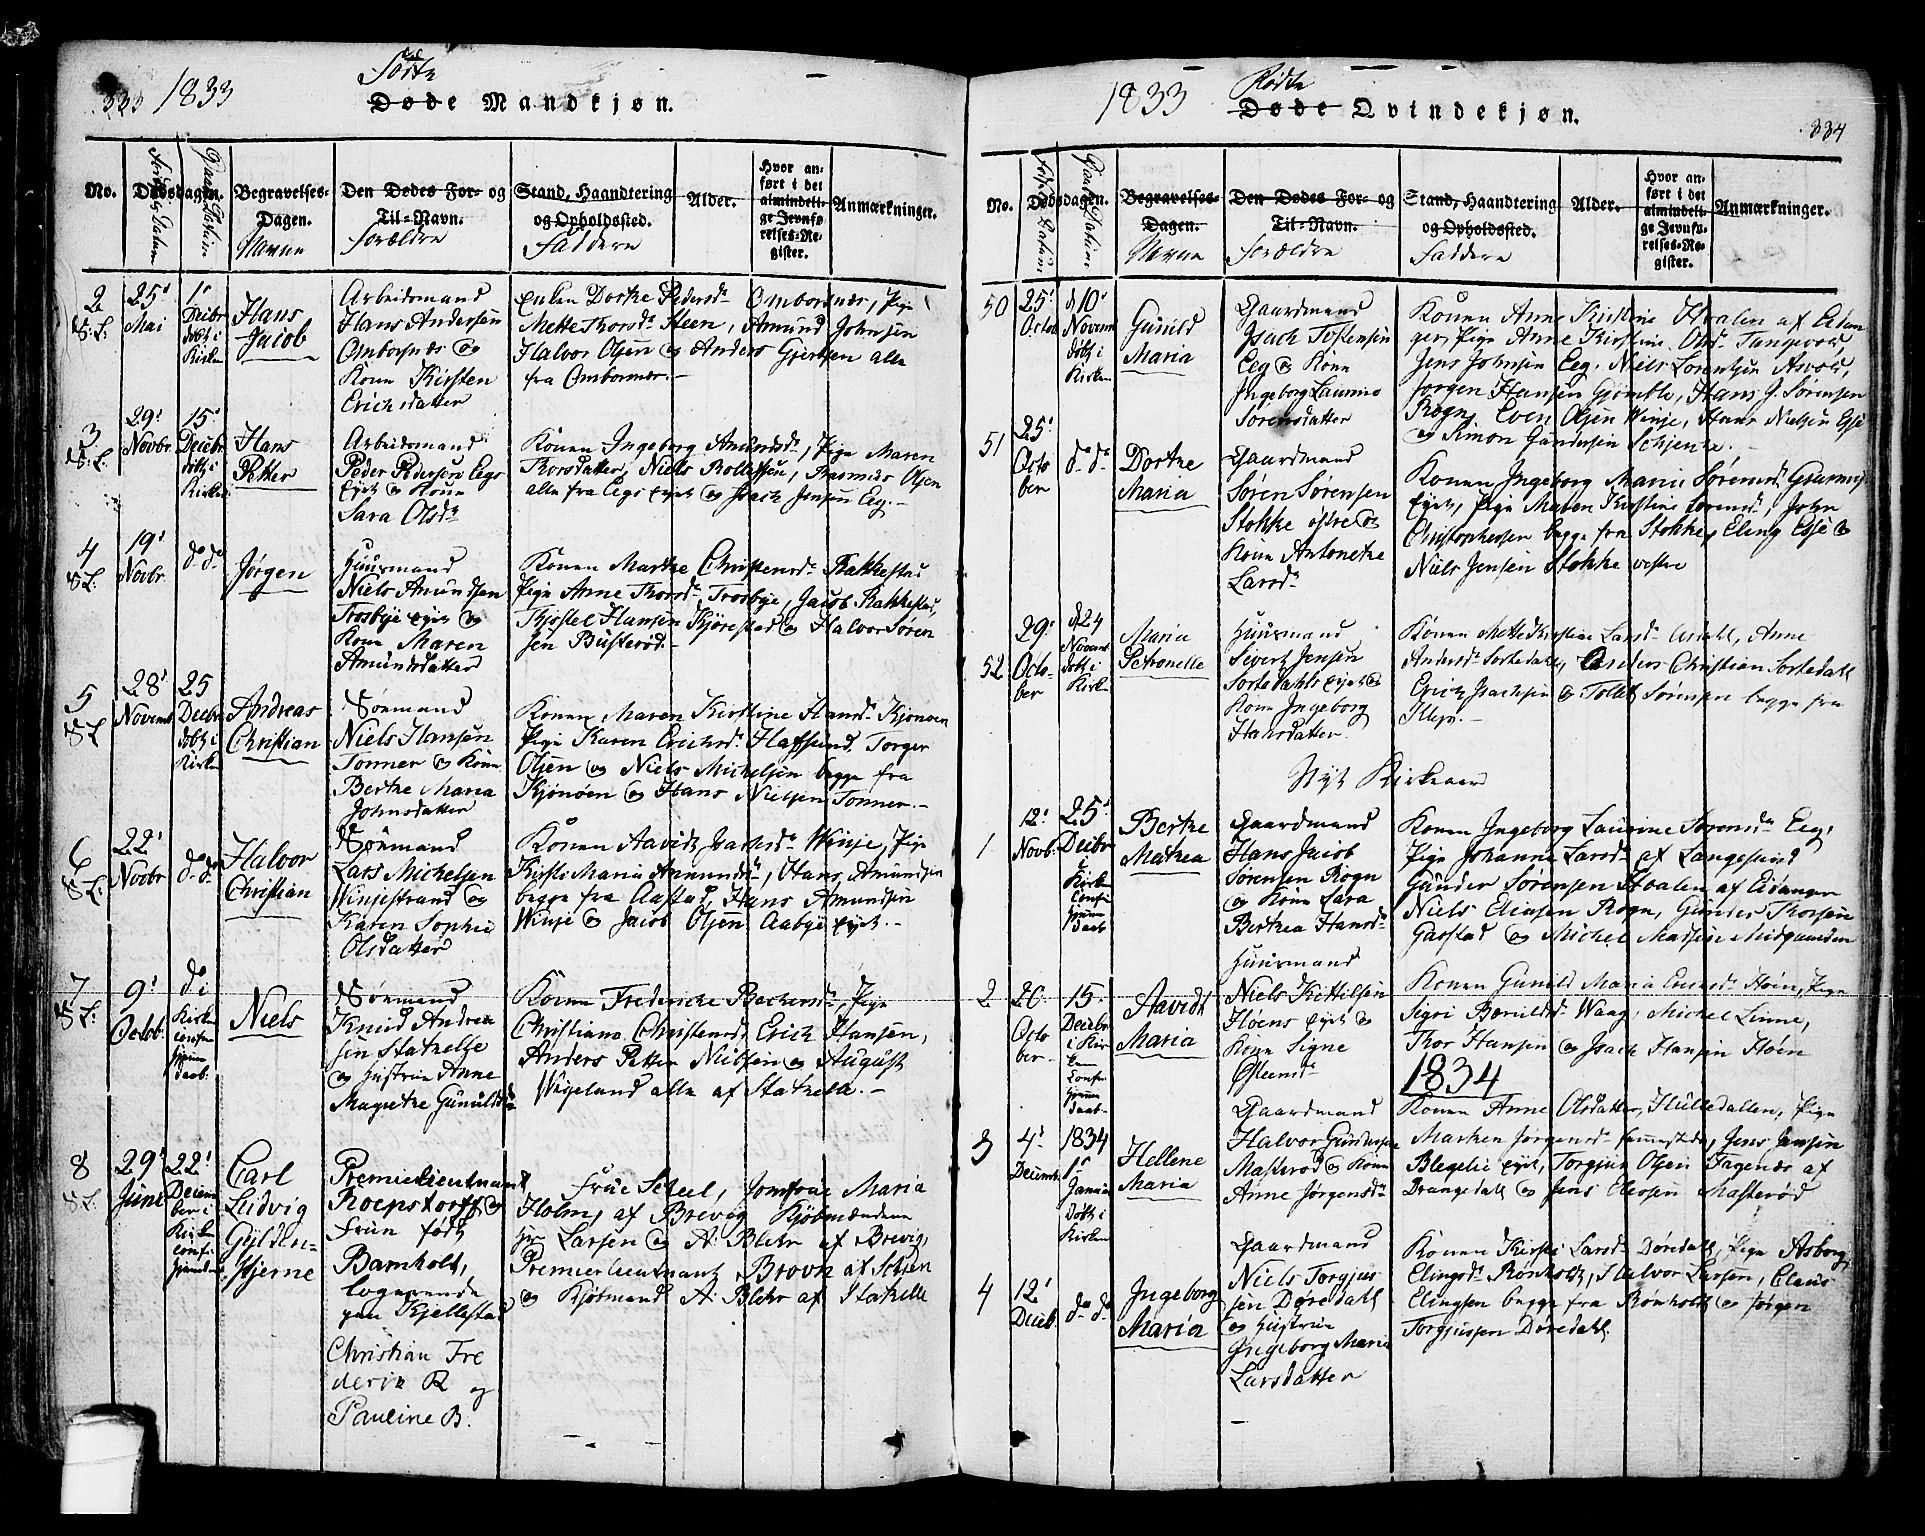 333 1833
Fødte
Døde Mandkjøn.
No.
Dødsdagen.
Begravelses-
Dagen.
Navne
Den Dødes For- og
Til-Navn.
Forældre
Stand, Haandtering
og Opholdssted.
Faddere
Alder.
Hvor an-
ført i det
almindeli-
ge Jevnfø-
relses-Re-
gister.
Anmærkninger.
2
25'
Mai
1'
Decbr
døbt i
Kirken
Hans
Jacob
Arbeidsmand
Hans Andersen
Ombornæs og
Kone Kirsten
Erichsdatter
Enken Dorthe Pedersd. Ombornæs, Pige
Mette Thorsd. Steen, Amund Johnsen
Halvor Olsen og Anders Gjertsen alle
fra Ombornæs.-
3
29'
Novbr
15'
Decbr
døbt i
Kirken
Hans
Petter
Arbeidsmand
Peder Pedersen Eegs
Eyet og Kone
Sara Olsd.
Konen Ingeborg Amundsd., Pige Maren
Thorsdatter, Niels Rollefsen, Rasmus Olsen
alle fra Eegs Eyet og Isach Jensen Eeg.-
4
19'
Novbr
do do
Jørgen
Huusmand
Niels Amundsen
Trosbye Eyet og
Kone Maren
Amundsdatter
Konen Marthe Christensd. Rakkestad
Pige Anne Thorsd. Trosbye, Jacob Rakkestad,
Kjøstel Hansen Kjørestad og Halvor Søren
sen Busterød.-
5
28'
Novemb
25
Decbr
døbt i
Kirken
Andreas
Christian
Sømand
Niels Hansen
Tonner og Kone
Berthe Maria
Johnsdatter
Konen Maren Kirstine Hansd. Kjønøen
Pige Karen Erichsd. Hafsund. Torger
Olsen og Niels Michelsen begge fra
Kjønøen og Hans Nielsen Tonner.-
6
22'
Novbr
do do
Halvor
Christian
Sømand
Lars Michelsen
Winjestrand og
Karen Sophie
Olsdatter
Konen Aavidt Isachsd. Winje, Pige
Kirsti Maria Amundsd., Hans Amundsen
begge fra Aastad, Hans Amundsen
Winje og Jacob Olsen Aabye Eyet.-
7
9'
Octob
do i
Kirke
Niels
Sømand
Knud Andrea
sen Stathelle
og Hustrue Anne
Magrethe Gunuldsd.
Konen Fredericke Bachensd., Pige
Christiane Christensd., Erich Hansen,
Anders Petter Nielsen og August
Wigeland alle af Stathelle.-
8
29'
June
22'
Decem
ber i
Kirke
Carl
Ludvig
Gylden-
stjerne
Premierlieutnant
Roepstorff og
Frue født
Barnholt,
logerende
paa Kjellestad
Christian Fre
derik R og
Pauline B.
Frue Scheel, Jomfrue Maria
Holm, af Brevig Kjøbmændene
Hr Larsen og A: Blehr af Brevig,
Premierlieutnant Brovn af Schien
og Kjøbmand A: Blehr af Stathelle
1833
Fødte
Døde Qvindekjøn.
334
No.
Dødsdagen.
Begravelses-
Dagen.
Navne
Den Dødes For- og
Til-Navn.
Forældre
Stand, Haandtering
og Opholdssted.
Faddere
Alder.
Hvor an-
ført i det
almindeli-
ge Jevnfø-
relses-Re-
gister.
Anmærkninger.
50
25'
Octob
d 10'
Novem
døbt i
Kirken
Gunild
Maria
Gaardmand
Isach Tostensen
Eeg og Kone
Ingeborg Laurine
Sørensdatter
Konen Anne Kirstine Hoalen af Eidan
ger, Pige Anne Kirstine Olsd. Tangevold
Jens Johnsen Eeg. Niels Lorentsen Asvold,
Jørgen Hansen Gjømle, Hans J. Sørensen
Rogn, Even Olsen Winje, Hans Nielsen Esje
og Simon Gundersen Schjenke.-
51
25'
Octo
ber
do do
Dorthe
Maria
Gaardmand
Søren Sørensen
Stokke østre og
Kone Antonethe
Larsd.
Konen Ingeborg Maria Sørensd.
Eyet, Pige Maren Kirstine Sørensd., John
Christophersen begge fra Stokke, Eling Esje og
Niels Jensen Stokke vestre
52
29'
Octo-
ber
d 24
Novem
døbt i
Kirken
Maria
Petronelle
Huusmand
Sivert Jensen
Sortedahls Eyet og
Kone Ingeborg
Hansdatter.
Konen Mette Kirstine Larsd. Asdahl, Anne
Andersd. Sortedahl, Anders Christian Sortedahl
Erich Isachsen og Tollef Sørensen begge fra
Nyt Kirkeaar
1
12'
Novb:
25'
Decbr
i
Kirken
Berthe
Mathea
Gaardmand
Hans Jacob
Sørensen Rogn
og Kone Sara
Berthea Hansd.
Konen Ingeborg Laurine Sørensd. Eeg,
Pige Johanne Larsd. af Langesund
Gunder Sørensen Hoalen af Eidanger
Niels Eliasen Rogn, Gunder Thorsen
Gaastad og Michel Madsen Midgaarden
2
20.
Octo
ber
15.
Decbr
i Kir
ken
Aavidt
Maria
Huusmand
Niels Kittelsen
Høens Eyet og
Kone Signe
Osteensd.
Konen Gunild Maria Høen, Pige
Sigri Boruldsd. Waag, Michel Linne,
Thor Hansen og Isach Hansen Høen
1834
3
4'
Decemb
1834
1'
Januar
døbt i
Kirken
Hellene
Maria
Gaardmand
Halvor Gundersen
Masterød og Kone
Anne Jørgensd.
Konen Anne Olsdatter, Hulledallen, Pige
Marthea Jørgensd. , Jens Jensen
Blegelie Eyet, Torgjus Olsen Fagenæs af
Drangedahl og Jens Olessen Masterød
4
12'
Decbr.
do do
Ingeborg
Maria
Gaardmand
Niels Torgjus
sen Døredahl
og Hustrue
Ingeborg Maria
Larsdatter
Konen Kirsti Larsd. Døredahl, Pige Aaborg
Elingsd. Rønholt, Halvor Larsen, Claus
Elingsen begge fra Rønholt og Jørgen
Torgjussen Døredahl.